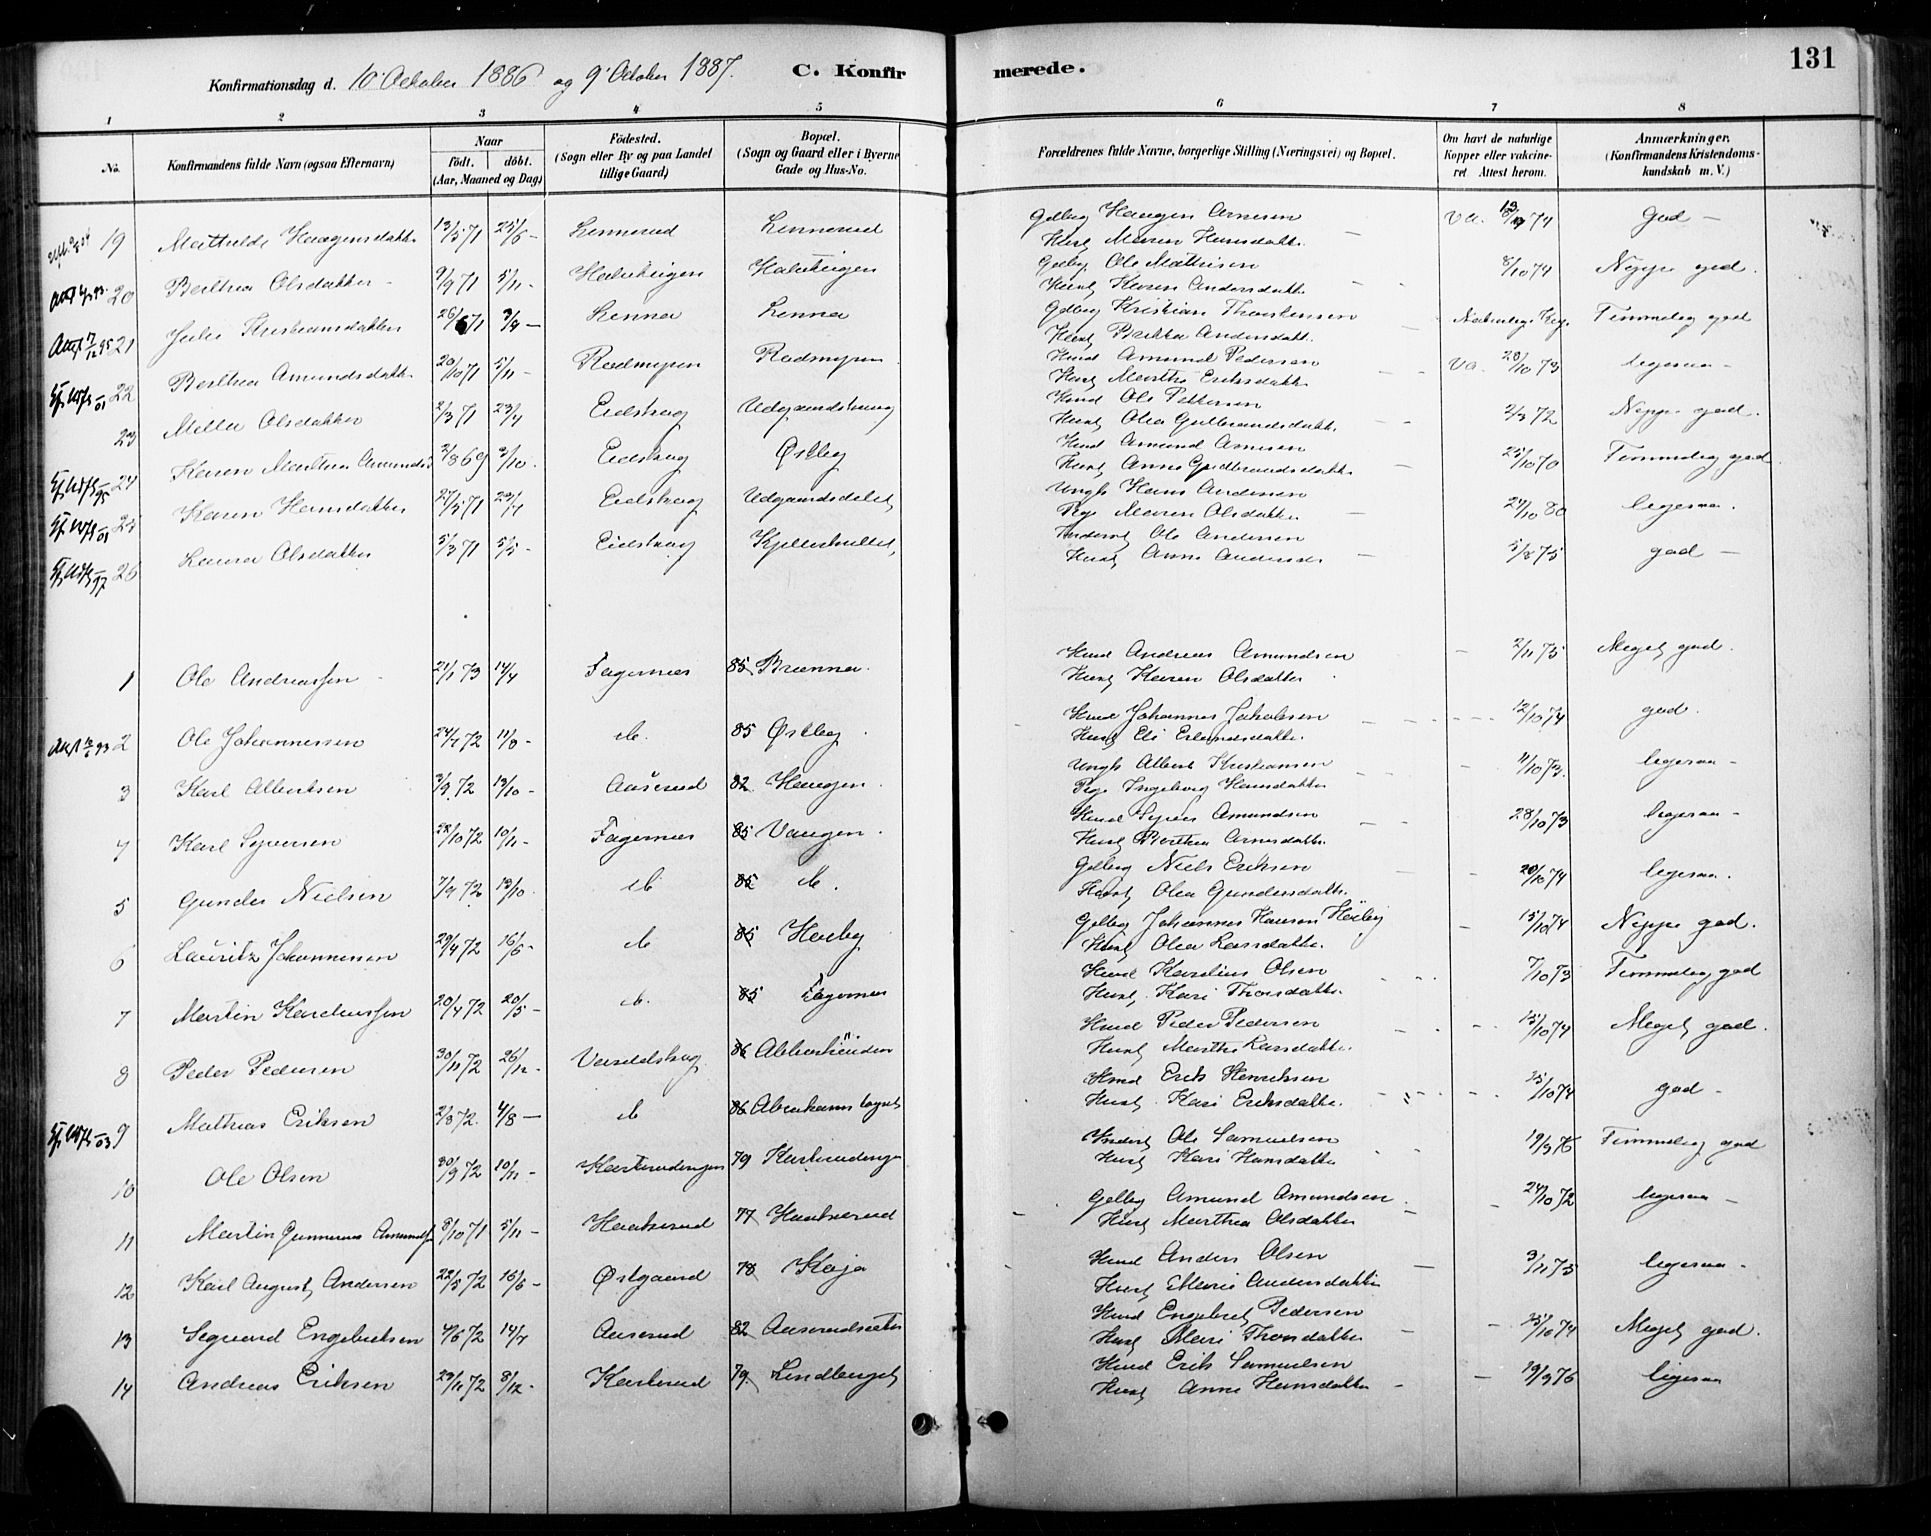 131
Konfirmationsdag d. 10' October 1886 og 9' October 1887. C. Konfir merede.
1 2 3 4 5 6 7 8
No. Konfirmandens fulde Navn (ogsaa Efternavn) Naar födt. döbt. (Aar, Maaned og Dag) Födested. (Sogn eller By og paa Landet tillige Gaard) Bopæl. (Sogn og Gaard eller i Byerne Gade og Hus-No. Forældrenes fulde Navne, borgerlige Stilling (Næringsvei) og Bopæl. Om havt de naturlige Kopper eller vakcineret Attest herom. Anmærkninger, (Konfirmandens Kristendomskundskab m. V.)
19 Mathilde Haagensdatter 13/5 71 25/6 - Lennerud Lennerud Gdbrg Haagen Arnesen Hust Maren Hansdatter va. god -
20 Berthea Olsdatter 9/9 71 5/11 - Halvtiigen Halvtiigen Ole Mathisen Hust Karen Andersdatter 8/10 74 Neppe god.
21 Julie Kristiansdatter 26/6 71 Lenna Lenna Kristian Thorstensen Hust Andersdatter Temmelig god
22 Berthea Amundsdatter 20/10 71 5/11 - Rødmyren Rødmyren Hmd Amund Pedersen Hust Marthe Eriksdatter va. 28/10 73 ligesaa -
23 Olsdatter 2/3 71 23/4 Eidskog Hmd Ole Pettersen Hust Olea Gulbrandsdatter 2/3 72 Neppe god.
24 Karen Marthea Amundsd 2/8 69 3/10. Eidskog Østby Hmd Amund Arnesen Hust Anne Guldbrandsdatter 25/10 70 Temmelig god
25 Karen Hansdatter 27/5 71 Eidskog Ungk Hans Andersen Pige Maren Olsdatter 24/10 80 ligesaa.
26 Laura Olsdatter 5/3 71 5/5 - Eidskog Ole Andersen Hust Anne Andersd. 5/8 75 god -
1 Ole Andreassen 21/1 73 14/4 Fagernes 85 Brenna. Hmd Andreas Amundsen Hust Karen Olsdatter 2/11 75 Meget god.
2 Ole Johannessen 24/7 72 11/8 - do. 85 Østby Hmd Johannes Jakobsen Hust Eli Erlandsdatter 12/10 74 god.
3 Karl Albertsen 3/9 72 13/10 - Auserud 82 Haugen Ungk Albert Kristiansen Pige Ingeborg Hansdatter 11/10 73. ligesaa -
4 Karl Syversen 28/10 72 10/11 - Fagernes 85 Vangen. Hmd Syver Amundsen Hust Berthea Arnesdatter 28/10 73 ligesaa -
5 Gunder Nielsen 7/9 72 13/10. do 85 do. Gdbrg Niels Eriksen Hust Olea Gundersdatter 20/10 74 ligesaa.
6 Lauritz Johannessen 29/4 72 16/6 - do 85 Høiby Johannes Hansen Høiby Hust Olea Larsdatter. 15/10 74 Neppe god.
7 Martin Karelinssen 20/4 72 20/5 - do. 85 Fagernes Hmd Karelius Olsen Hust. Kari Thorsdatter. 7/10 73 Temmelig god
8 Peder Pedersen 30/11 72 26/12 - Varaldskog 86 Hmd Peder Pedersen Hust Marthe Larsdatter. 15/10 74 Meget god.
9 Mathias Eriksen 2/8 72. 4/8 - do 86 Abrahamstorpet Hmd Erik Henriksen Hust. Kari Eriksdatter. 25/10 74 god -
10 Ole Olsen 30/9 72 10/11 - Kasterudengen 79 Kasterudenge Ole Samuelsen Hust Kari Hansdatter 19/9 76 Temmelig god
11 Martin Gunnerus Amunds 8/10 71 5/11 - Haukerud 77 Haukerud Gdbrg Amund Amundsen Hust Marthea Olsdatter 24/10 72 ligesaa -
12 Karl August Andersen 22/5 72 16/6 - Østgaard 78 Koja Hmd Anders Olsen Hust Marie Andersdatter 3/11 75 ligesaa -
13 Sigvard Engebretsen 4/6 72 14/7 Auserud 82 Auserudsæter Hmd Engebret Pedersen Hust Mari Thorsdatter 25/10 74 Meget god.
14 Andreas Eriksen 29/11 72 8/12 - Kasterud 79. Lindberget Hmd Erik Samuelsen Hust Anne Hansdatter 19/9 76 ligesaa